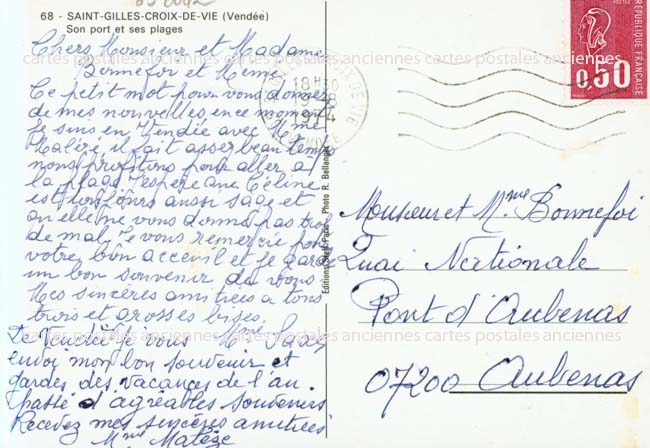 68 - SAINT-GILLES-CROIX-DE-VIE (Vendée)
Son port et ses plages
Chers Monsieur et Madame
Bonnefoi et Mémé
Ce petit mot pour vous donner
de mes nouvelles, en ce moment
je suis en Vendée avec Mme
Matèze, il fait asser beau temps
nous profitons pour aller à
la plage. J'espère que Céline
est toujours aussi sage et
qu'elle ne vous donne pas trop
de mal. Je vous remercie pour
votre bon acceuil et je garde
un bon souvenir de vous
Mes sincères amitiées a tous
trois et grosses bises.
Mme
De Vendée je vous
envoi mon bon souvenir et
gardes des vacances de l'an
passé d'agréables souvenirs
Recevez mes sincères amitiées
Mme Matèze
Editions
Photo R. Bellanger
18H30
1974
POSTES
REPUBLIQUE FRANÇAISE
0,50
Monsieur et Mme Bonnefoi
Quai Nationale
Pont d'Aubenas
07200 Aubenas
cartes postales anciennes cartes postales anciennes
cartes postales anciennes cartes postales anciennes